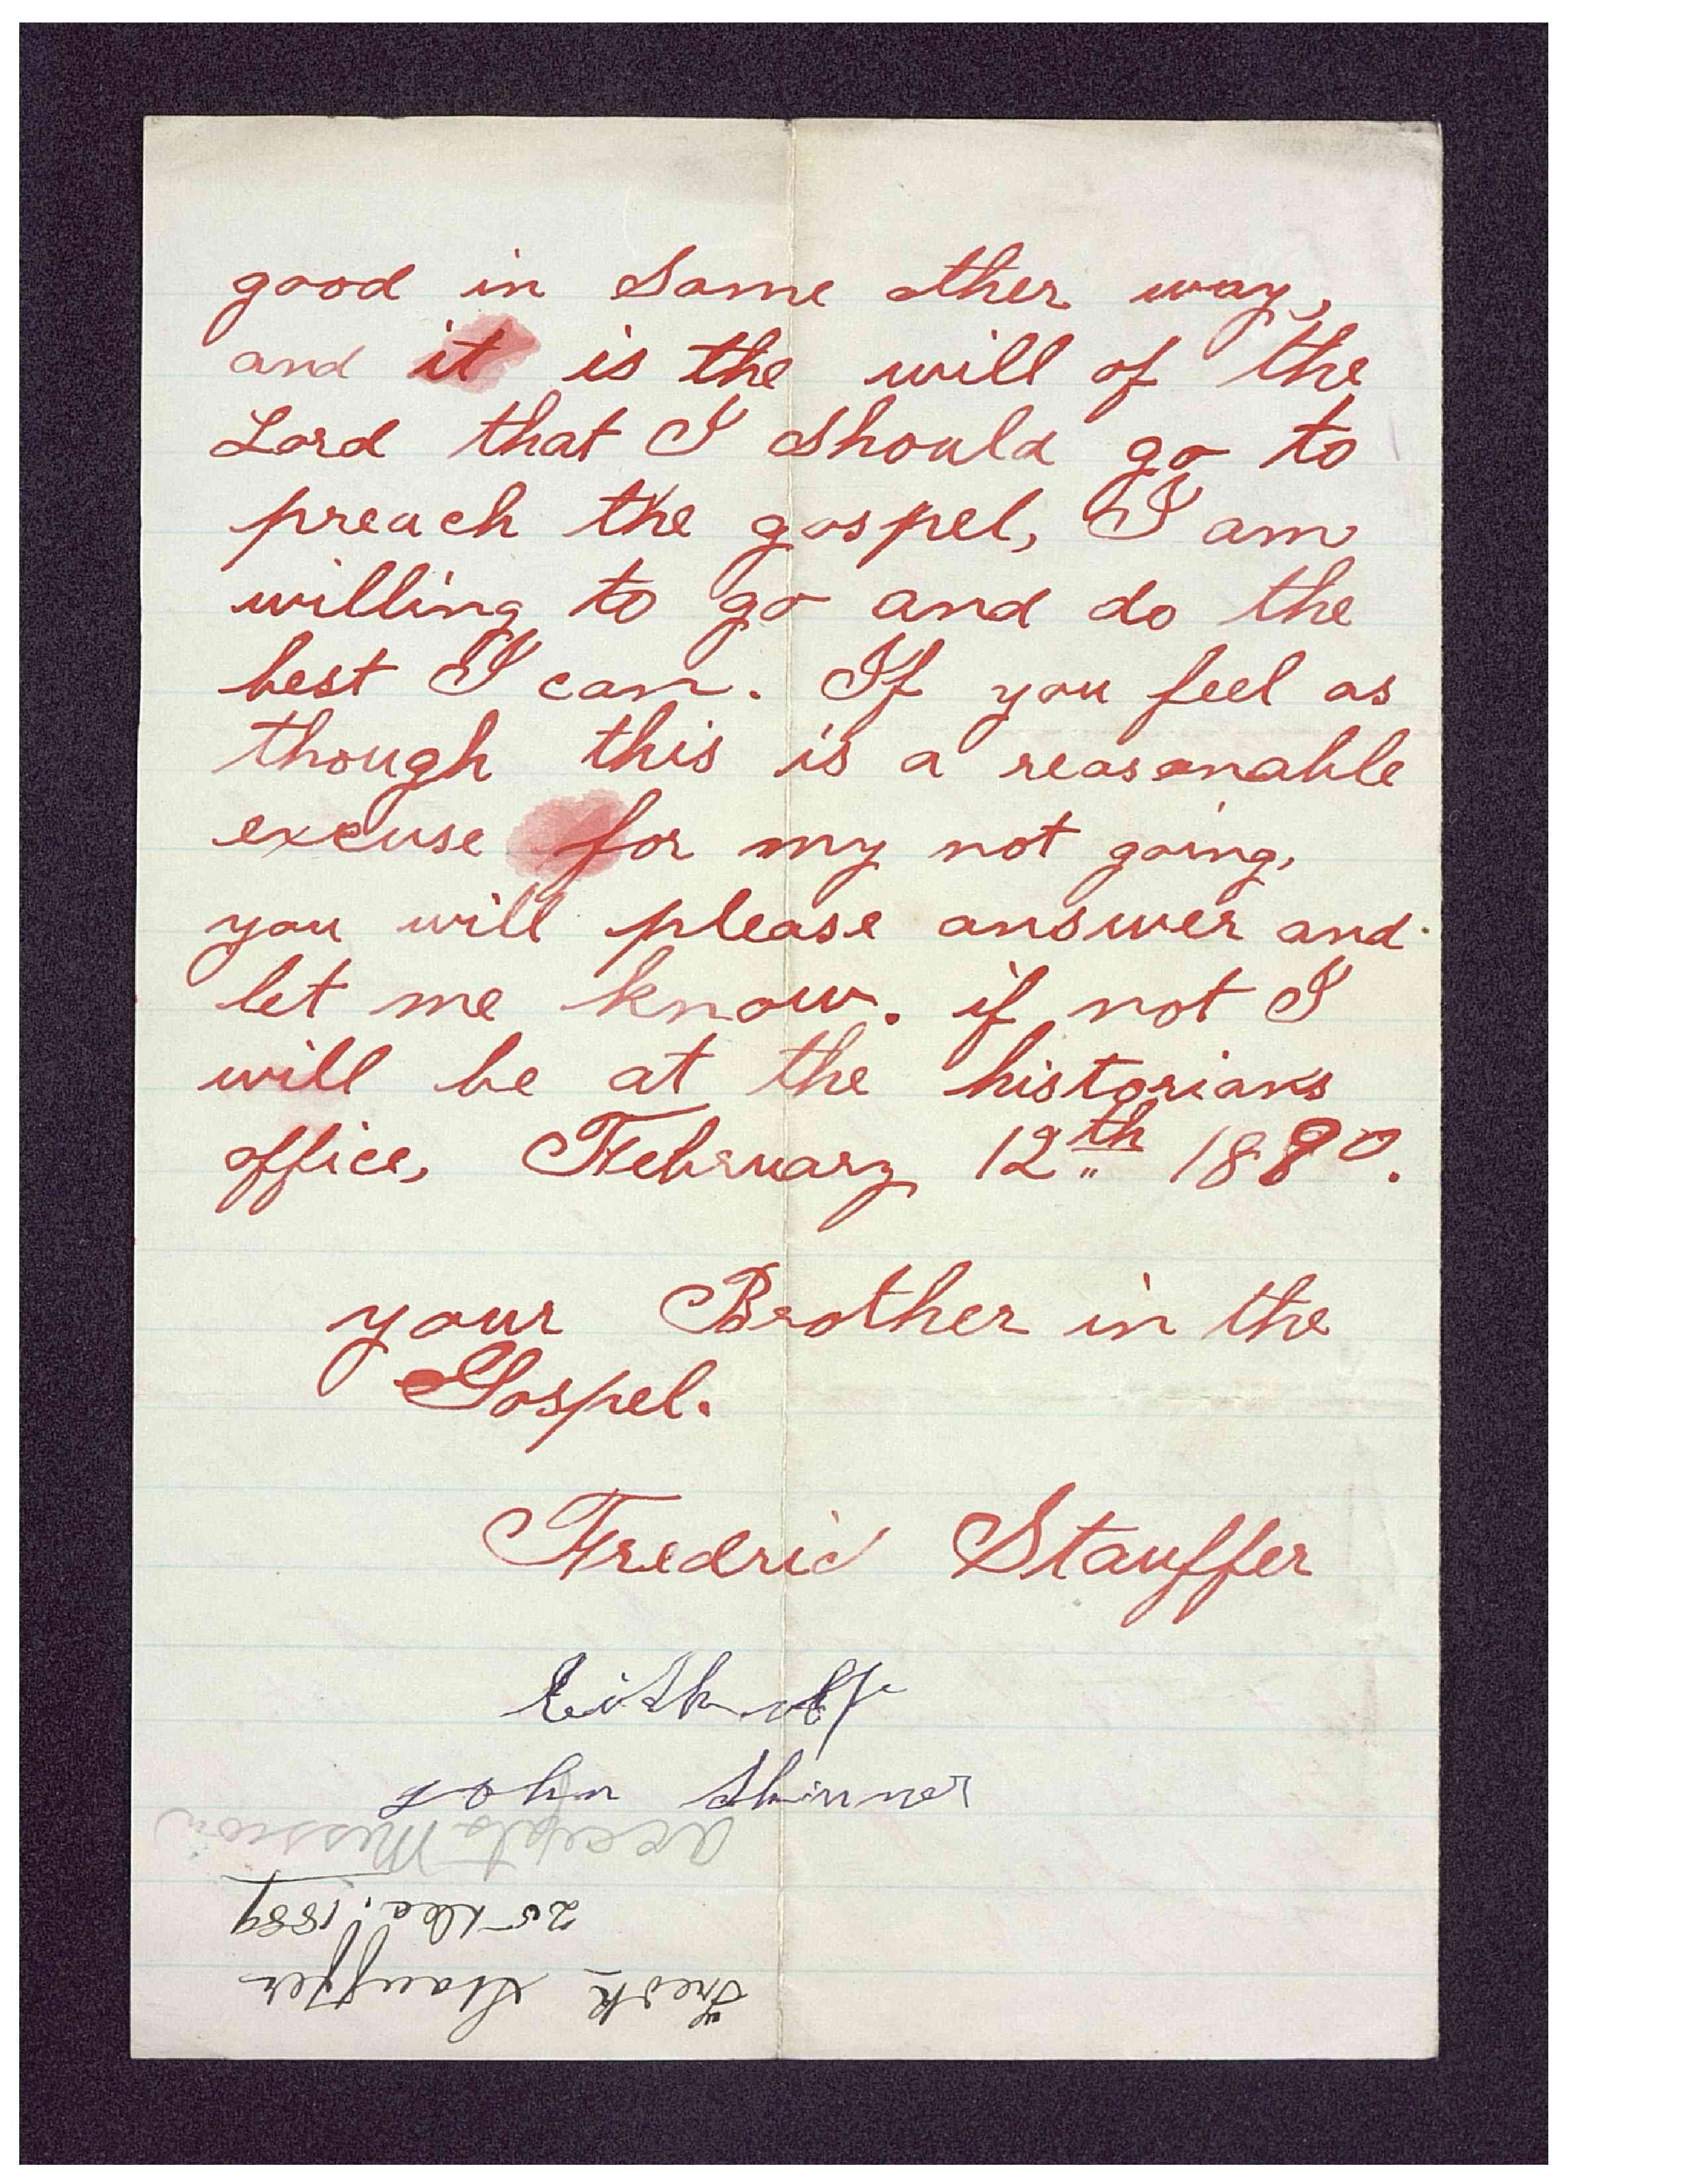 good in some other way,
and it is the will of the
Lord that I should go to
preach the gospel, I am
willing to go and do the
best I can. If you feel as
though this is a reasonable
excuse for my not going,
you will please answer and
let me know. if not I
will be at the historians
office, February 12th 1890.
your Brother in the
Gospel.
Fredric Stauffer
John Skinner
Fredk Stauffer
25 Dec. 1889
Accepts Mission